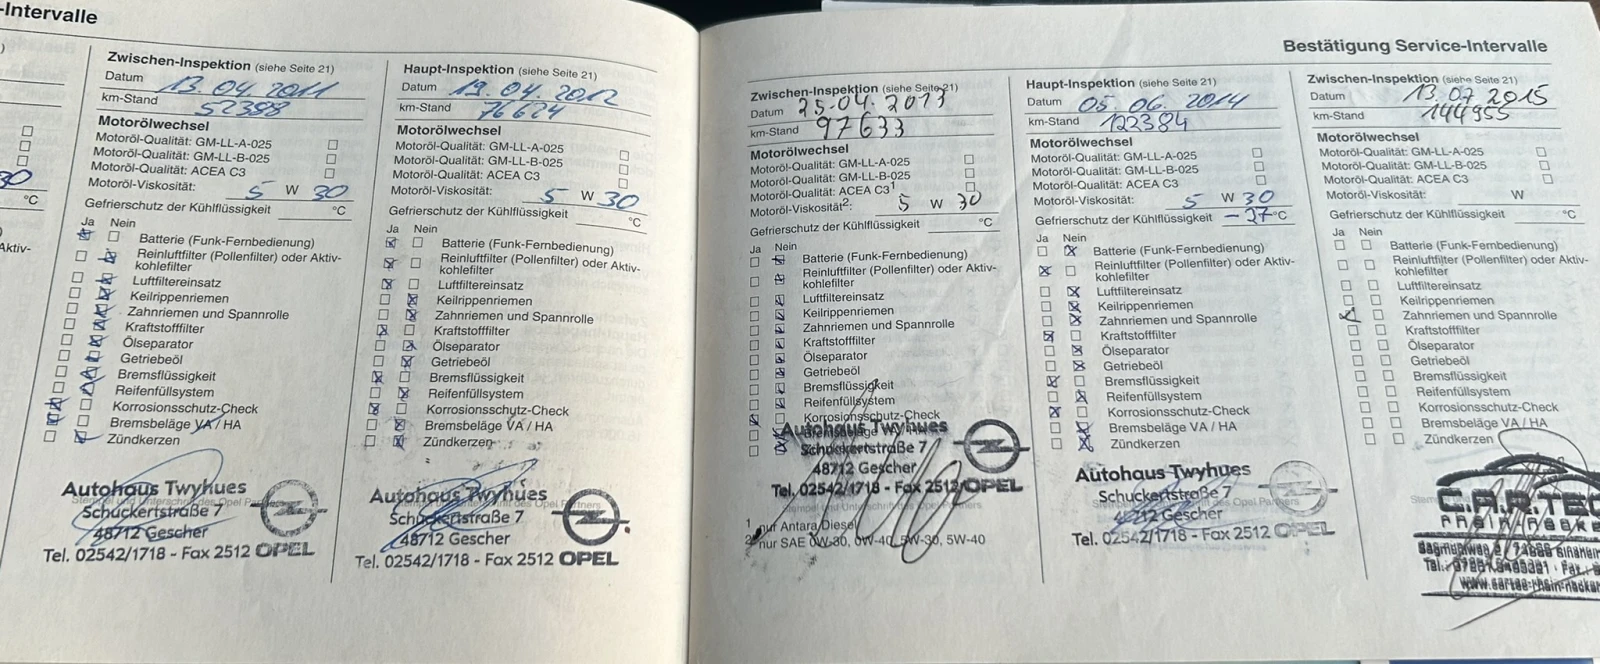 -Intervalle
30
°C
Aktiv-
Zwischen-Inspektion (siehe Seite 21)
Datum 13.04.2011
km-Stand 52388
Motorölwechsel
Motoröl-Qualität: GM-LL-A-025
Motoröl-Qualität: GM-LL-B-025
Motoröl-Qualität: ACEA C3
Motoröl-Viskosität: 5 W 30
Gefrierschutz der Kühlflüssigkeit °C
Ja Nein
Batterie (Funk-Fernbedienung)
Reinluftfilter (Pollenfilter) oder Aktiv-
kohlefilter
Luftfiltereinsatz
Keilrippenriemen
Zahnriemen und Spannrolle
Kraftstofffilter
Ölseparator
Getriebeöl
Bremsflüssigkeit
Reifenfüllsystem
Korrosionsschutz-Check
Bremsbeläge VA / HA
Zündkerzen
Autohaus Twyhues
Stempel und Unterschrift des Opel Partners
Schuckertstraße 7
48712 Gescher
Tel. 02542/1718 - Fax 2512 OPEL
Haupt-Inspektion (siehe Seite 21)
Datum 19.04.2012
km-Stand 76624
Motorölwechsel
Motoröl-Qualität: GM-LL-A-025
Motoröl-Qualität: GM-LL-B-025
Motoröl-Qualität: ACEA C3
Motoröl-Viskosität: 5 W 30
Gefrierschutz der Kühlflüssigkeit °C
Ja Nein
Batterie (Funk-Fernbedienung)
Reinluftfilter (Pollenfilter) oder Aktiv-
kohlefilter
Luftfiltereinsatz
Keilrippenriemen
Zahnriemen und Spannrolle
Kraftstofffilter
Ölseparator
Getriebeöl
Bremsflüssigkeit
Reifenfüllsystem
Korrosionsschutz-Check
Bremsbeläge VA / HA
Zündkerzen
Autohaus Twyhues
Stempel und Unterschrift des Opel Partners
Schuckertstraße 7
48712 Gescher
Tel. 02542/1718 - Fax 2512 OPEL
Bestätigung Service-Intervalle
Zwischen-Inspektion (siehe Seite 21)
Datum 25.04.2013
km-Stand 97633
Motorölwechsel
Motoröl-Qualität: GM-LL-A-025
Motoröl-Qualität: GM-LL-B-025
Motoröl-Qualität: ACEA C3¹
Motoröl-Viskosität²: 5 W 30
Gefrierschutz der Kühlflüssigkeit °C
Ja Nein
Batterie (Funk-Fernbedienung)
Reinluftfilter (Pollenfilter) oder Aktiv-
kohlefilter
Luftfiltereinsatz
Keilrippenriemen
Zahnriemen und Spannrolle
Kraftstofffilter
Ölseparator
Getriebeöl
Bremsflüssigkeit
Reifenfüllsystem
Korrosionsschutz-Check
Bremsbeläge VA / HA
Autohaus Twyhues
Schuckertstraße 7
48712 Gescher
Tel. 02542/1718 - Fax 2512 OPEL
Stempel und Unterschrift des Opel Partners
¹ nur Antara Diesel
² nur SAE 0W-30, 0W-40, 5W-30, 5W-40
Haupt-Inspektion (siehe Seite 21)
Datum 05.06.2014
km-Stand 122384
Motorölwechsel
Motoröl-Qualität: GM-LL-A-025
Motoröl-Qualität: GM-LL-B-025
Motoröl-Qualität: ACEA C3
Motoröl-Viskosität: 5 W 30
Gefrierschutz der Kühlflüssigkeit -27 °C
Ja Nein
Batterie (Funk-Fernbedienung)
Reinluftfilter (Pollenfilter) oder Aktiv-
kohlefilter
Luftfiltereinsatz
Keilrippenriemen
Zahnriemen und Spannrolle
Kraftstofffilter
Ölseparator
Getriebeöl
Bremsflüssigkeit
Reifenfüllsystem
Korrosionsschutz-Check
Bremsbeläge VA / HA
Zündkerzen
Autohaus Twyhues
Schuckertstraße 7
Stempel und Unterschrift des Opel Partners
48712 Gescher
Tel. 02542/1718 - Fax 2512 OPEL
Zwischen-Inspektion (siehe Seite 21)
Datum 13.07.2015
km-Stand 144955
Motorölwechsel
Motoröl-Qualität: GM-LL-A-025
Motoröl-Qualität: GM-LL-B-025
Motoröl-Qualität: ACEA C3
Motoröl-Viskosität: W
Gefrierschutz der Kühlflüssigkeit °C
Ja Nein
Batterie (Funk-Fernbedienung)
Reinluftfilter (Pollenfilter) oder Aktiv-
kohlefilter
Luftfiltereinsatz
Keilrippenriemen
Zahnriemen und Spannrolle
Kraftstofffilter
Ölseparator
Getriebeöl
Bremsflüssigkeit
Reifenfüllsystem
Korrosionsschutz-Check
Bremsbeläge VA / HA
Zündkerzen
C.A.R.TEC